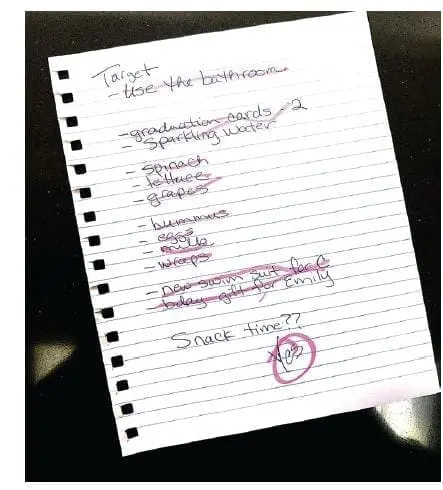 Target
- Use the bathroom
- graduation cards - 2
- Sparkling water
- spinach
- lettuce
- grapes
- hummus
- eggs
- milk
- wraps
- new swim suit for C
- bday gift for Emily
Snack time??
Yes